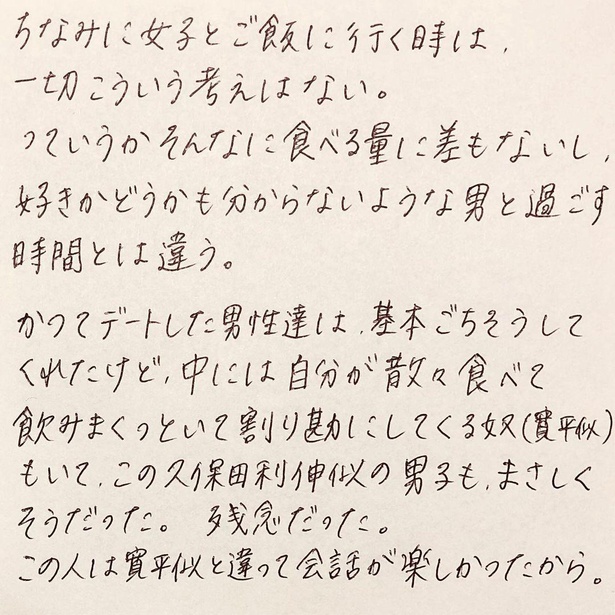 ちなみに女子とご飯に行く時は、
一切こういう考えはない。
っていうかそんなに食べる量に差もないし、
好きかどうかも分からないような男と過ごす
時間とは違う。
かつてデートした男性達は、基本ごちそうして
くれたけど、中には自分が散々食べて
飲みまくっといて割り勘にしてくる奴(寛平似)
もいて、この久保田利伸似の男子も、まさしく
そうだった。 残念だった。
この人は寛平似と違って会話が楽しかったから。